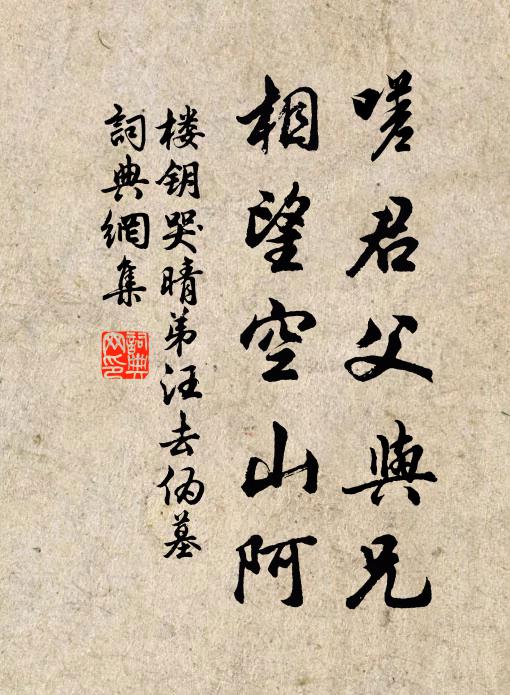 嗟君父與兄
相望空山阿
楼钥哭晴弟汪去伪墓
詞典網集
詞典
网印